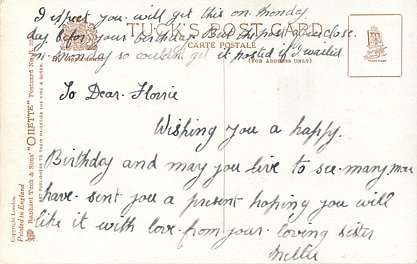 I expect you will get this on Monday
day before your birthday. But the post offices close
on Monday so couldn't get it posted if I waited
TUCK'S POST CARD
CARTE POSTALE
(FOR ADDRESS ONLY)
To Dear Florrie
Wishing you a happy.
Birthday and may you live to see many more
have sent you a present hoping you will
like it with love from your loving sister
Millie
Copyright London
Printed in England
Raphael Tuck & Sons' "OILETTE" Postcard No.
ART PUBLISHERS TO THEIR MAJESTIES THE KING & QUEEN.